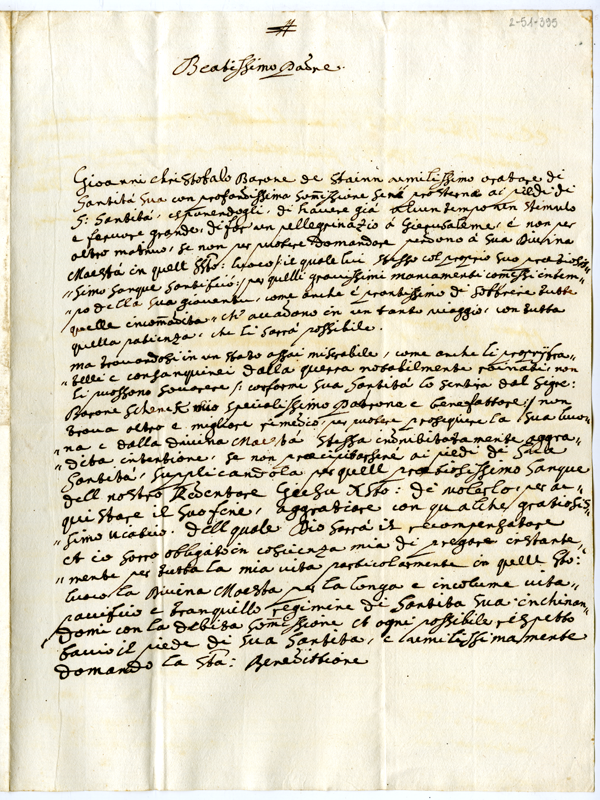 2-51-395
Beatissimo Padre.
Gioanni Christofalo Barone de Stainn umilissimo oratore di
Santità Sua con profondissima somissione sene prosterna ai piedi di
S: Santità, esponendogli, di havere già alcun tempo un stimulo
e fervore grande, di far un pellegrinazio à Gierusaleme, é non per
altro motivo, se non per potere domandare perdono à Sua Divina
Maestà in quell Sto: luoco /: il quale lui stesso col proprio suo pretiosis„
„simo Sangue Santificò :/ per quelli gravissimi mancamenti comessi in tem„
„po della sua gioventù, come anche è prontissimo di soffrire tutte
quelle incomodità, ch' accadono in un tanto viaggio, con tutta
quella patienza, che li sarrà possibile.
ma trovandosi in un stato assai miserabile, come anche li proprij fra„
„telli e consanguinei dalla guerra notabilmente roinati, non
li possono socorere /: conforme sua Santità lo sentirà dal Sigre:
Barone Schenk mio specialissimo Patrone e benefattore :/ non
trova altro e migliore remedio, per potere proseguire la sua buo„
„na e dalla Divina Maestà stessa indubitatamente aggra„
„dita intentione, se non præcipitarsene ai piedi di Sua
Santità, supplicandola per quell prætiosissimo Sangue
dell nostro Redentore Giesu Xsto: di volerlo, per ac„
quistare il suo fine, aggratiare con qualche gratiosis„
„simo viatico. dell quale Dio sarrà il recompensatore
et io sarro obligato in cosicienza mia di pregare instante„
„mente per tutta la mia vita particolarmente in quell Sto:
luoco la Divina Maestà per la longa e incolume vita„
pacifico e tranquillo regimine di Santità Sua. inchinan„
domi con la debita somissione et ogni possibile rispetto
bacio il piede di Sua Santità, e umilissimamente
domando la Sta: Benedittione